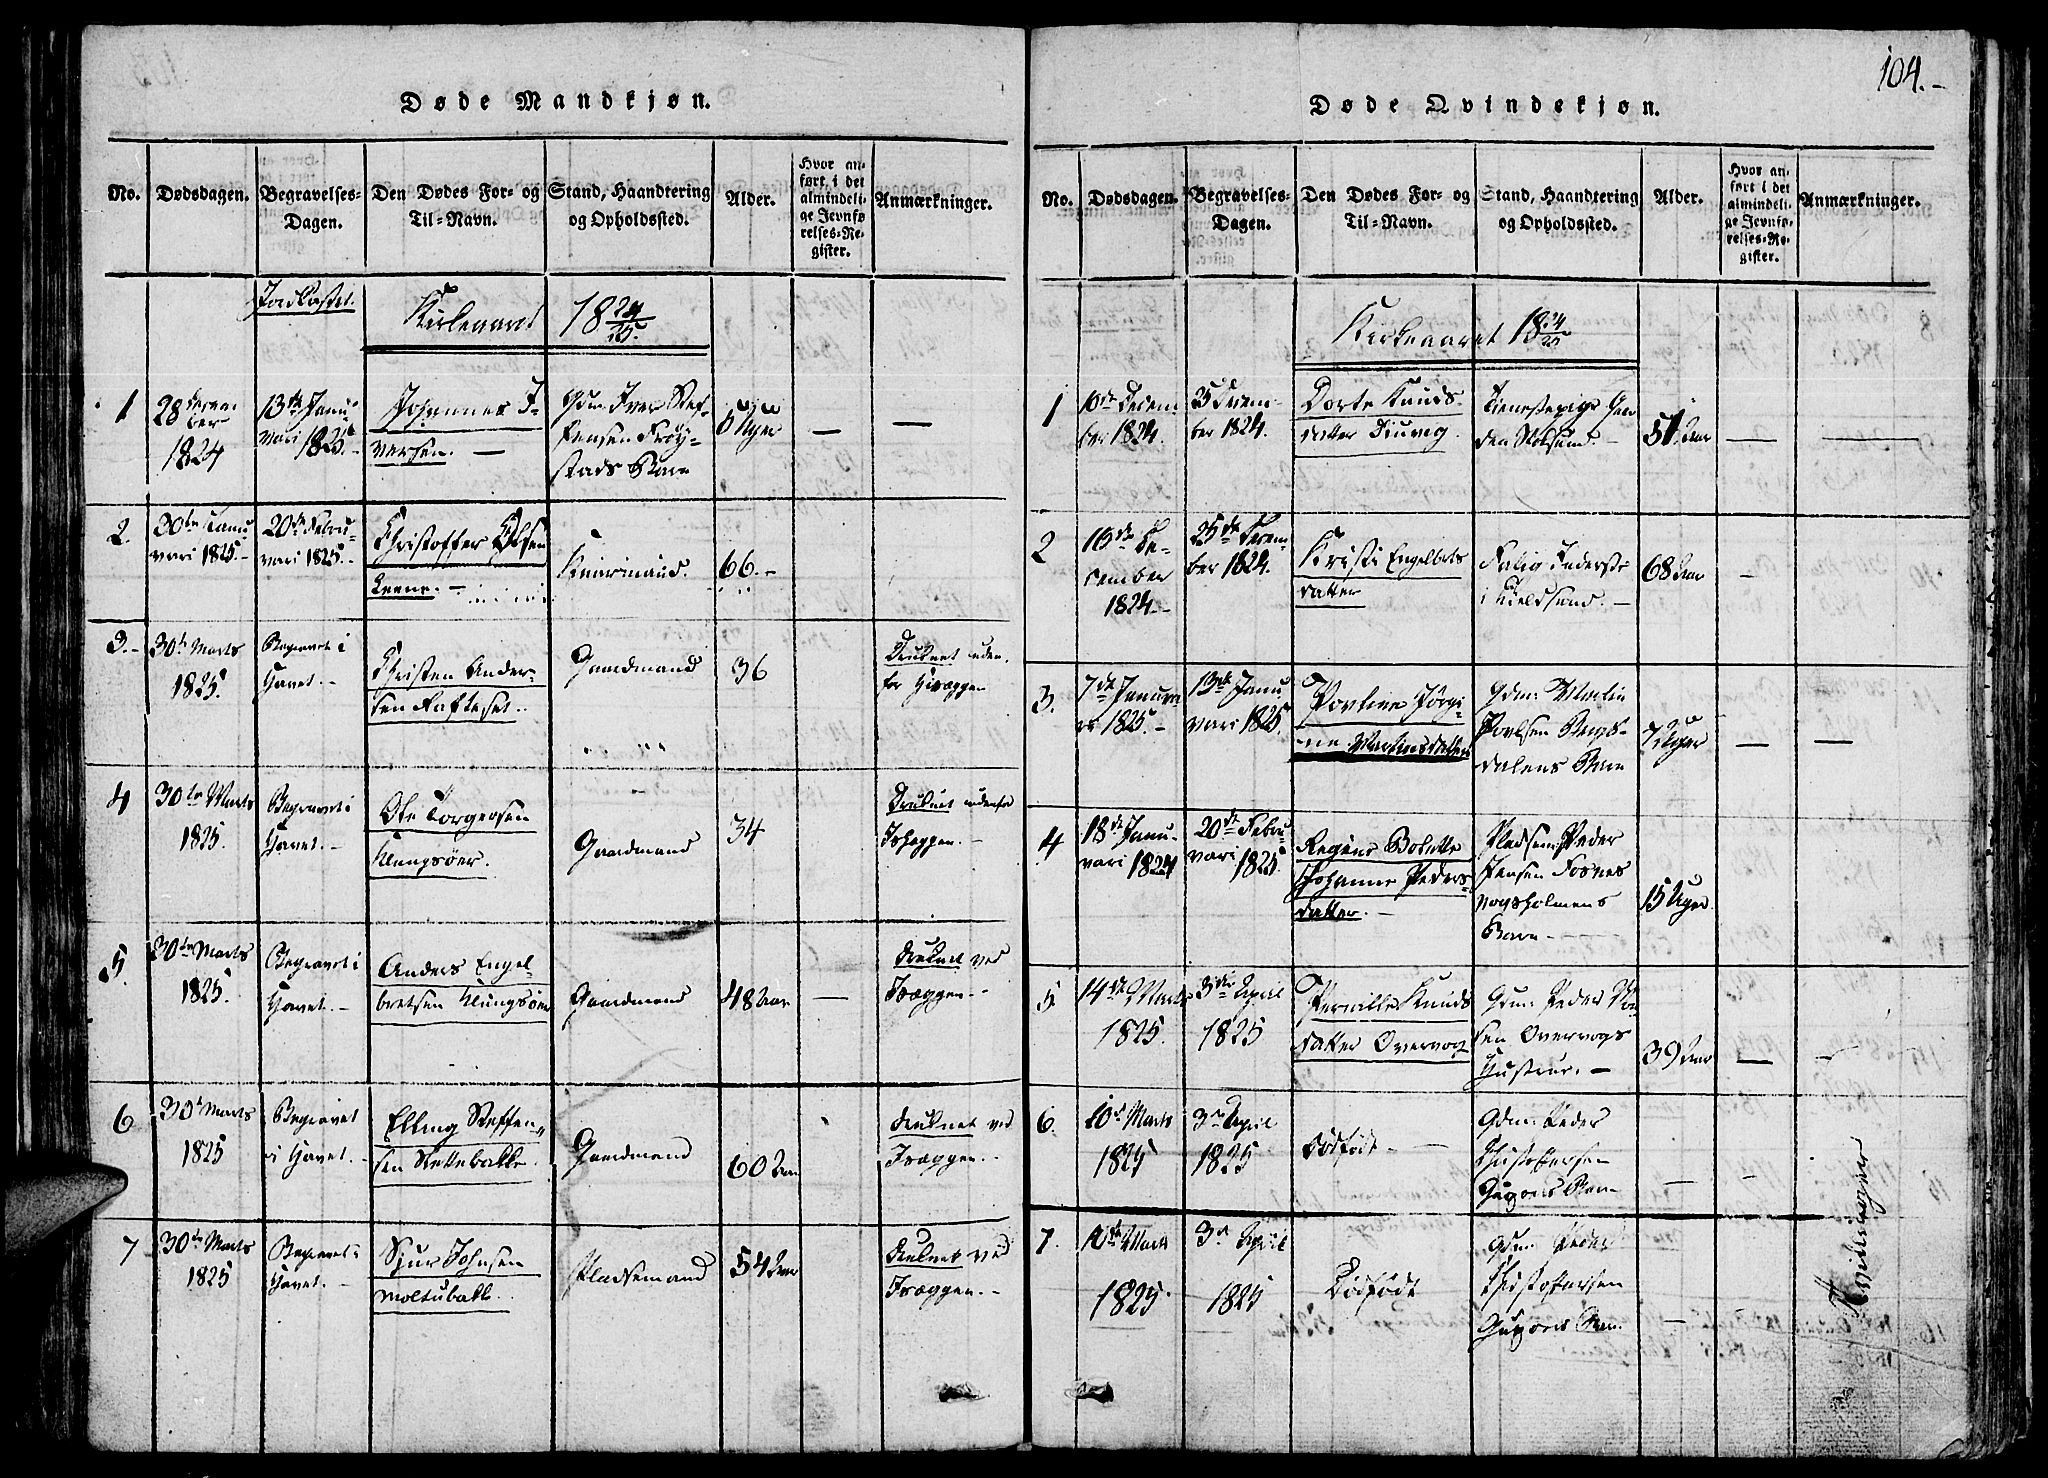 104.-
Døde Mandkjøn.
No. Dødsdagen. Begravelses-Dagen. Den Dødes For- og Til-Navn. Stand, Haandtering og Opholdssted. Alder. Hvor anført i det almindelige Jevnførelses-Register. Anmærkninger.
Jordkastet.
Kirkeaaret 18 24/25.
1 28 Decem-
ber
1824
13de Janu-
vari 1825.-
Johannes I-
versen. —
Gdm: Iver Stef-
fensen Frøy-
stads Barn
6 Uger
2. 30te Janu-
vari 1825.-
20de Febru-
vari 1825.-
Christoffer Olsen
Kaarmand.
66.-
3.- 30te Marts
1825.
Begravet i
Havet.-
Christen Ander-
sen
Gaardmand
36
Druknet uden-
for
4 30te Marts
1825.
Begravet i
Havet.-
Ole Torgersen
Klungsøer.
Gaardmand
34
Druknet udenfor
5. 30te Marts
1825.
Begravet i
Havet.-
Anders Engel-
bretsen Klungsøer
Gaardmand
48 Aar
Druknet ved
Træggen.-
6 30te Marts
1825
Begravet
i Havet.-
Elling Steffen-
sen Nettebakke.
Gaardmand
60 Aar
Druknet ved
Træggen.-
7 30te Marts
1825
Begravet i
Havet.-
Sjur Johnsen
Moltubakk.
Pladsemand
54 Aar
Druknet ved
Træggen.-
Døde Qvindekjøn.
No. Dødsdagen. Begravelses-Dagen. Den Dødes For- og Til-Navn. Stand, Haandtering og Opholdssted. Alder. Hvor anført i det almindelige Jevnførelses-Register. Anmærkninger.
Kirkeaaret 18 24/25
1 10de Decem-
ber 1824.
25 Decem-
ber 1824.
Dorte Knuds-
datter Diuvig.
Tienestepige
51. Aar
2 16de De-
cember
1824.-
25de Decem-
ber 1824.
Kristi Engelbrets
datter
Fattig Inderste
i
68 Aar
3. 7de Januva-
ri 1825.-
13de Janu-
vari 1825.
Povline Jørgi-
ne Martinsdatter
Gdm: Martin
Povlsen Bergs-
dalens Barn
7 Uger
4 18de Janu-
vari 1824
20de Febru-
vari 1825.
Regine Bolette
Johanne Peders-
datter.-
Pladsem: Peder
Jensen Fosnes
vogsholmens
Barn
15 Uger.
5 14de Marts
1825.
3die April
1825
Pernille Knuds
datter Overvog
Gdm: Peder
sen Overvogs
Hustrue.-
39 Aar
6. 10de Marts
1825
3de April
1825
Dødfødt-
Gdm: Peder
Christofersen
Barn-
7. 10de Marts
1825.
3de April
1825
Dødfødt
Gdm: Peder
Christofersen
Barn.
Tvillinger